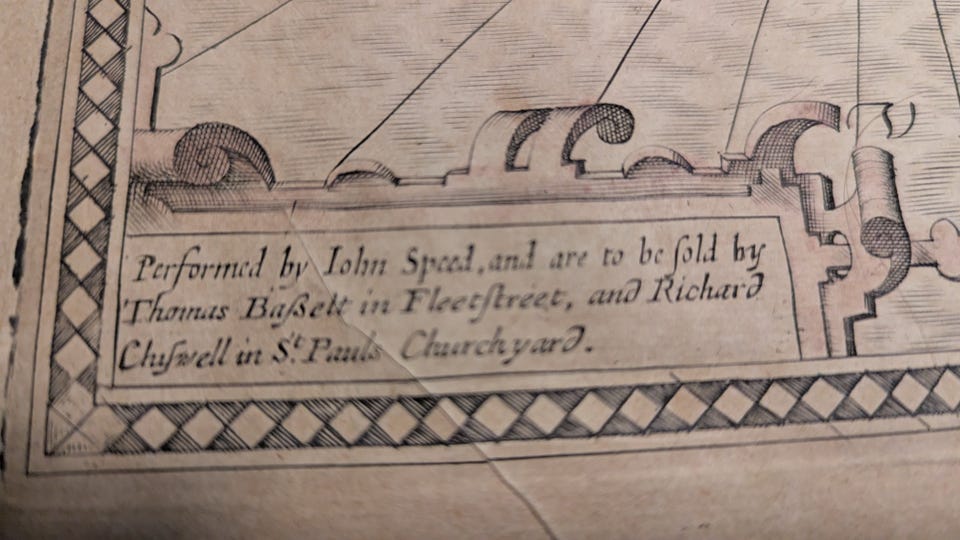 Performed by Iohn Speed, and are to be ſold by
Thomas Baſsett in Fleetſtreet, and Richard
Chiſwell in S.t Pauls Churchyard.